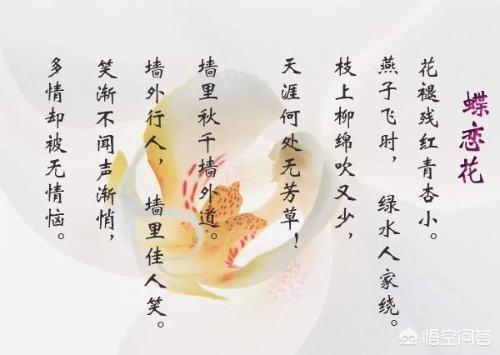 蝶恋花
花褪残红青杏小。
燕子飞时， 绿水人家绕。
枝上柳绵吹又少，
天涯何处无芳草！
墙里秋千墙外道。
墙外行人， 墙里佳人笑。
笑渐不闻声渐悄，
多情却被无情恼。
悟空问答